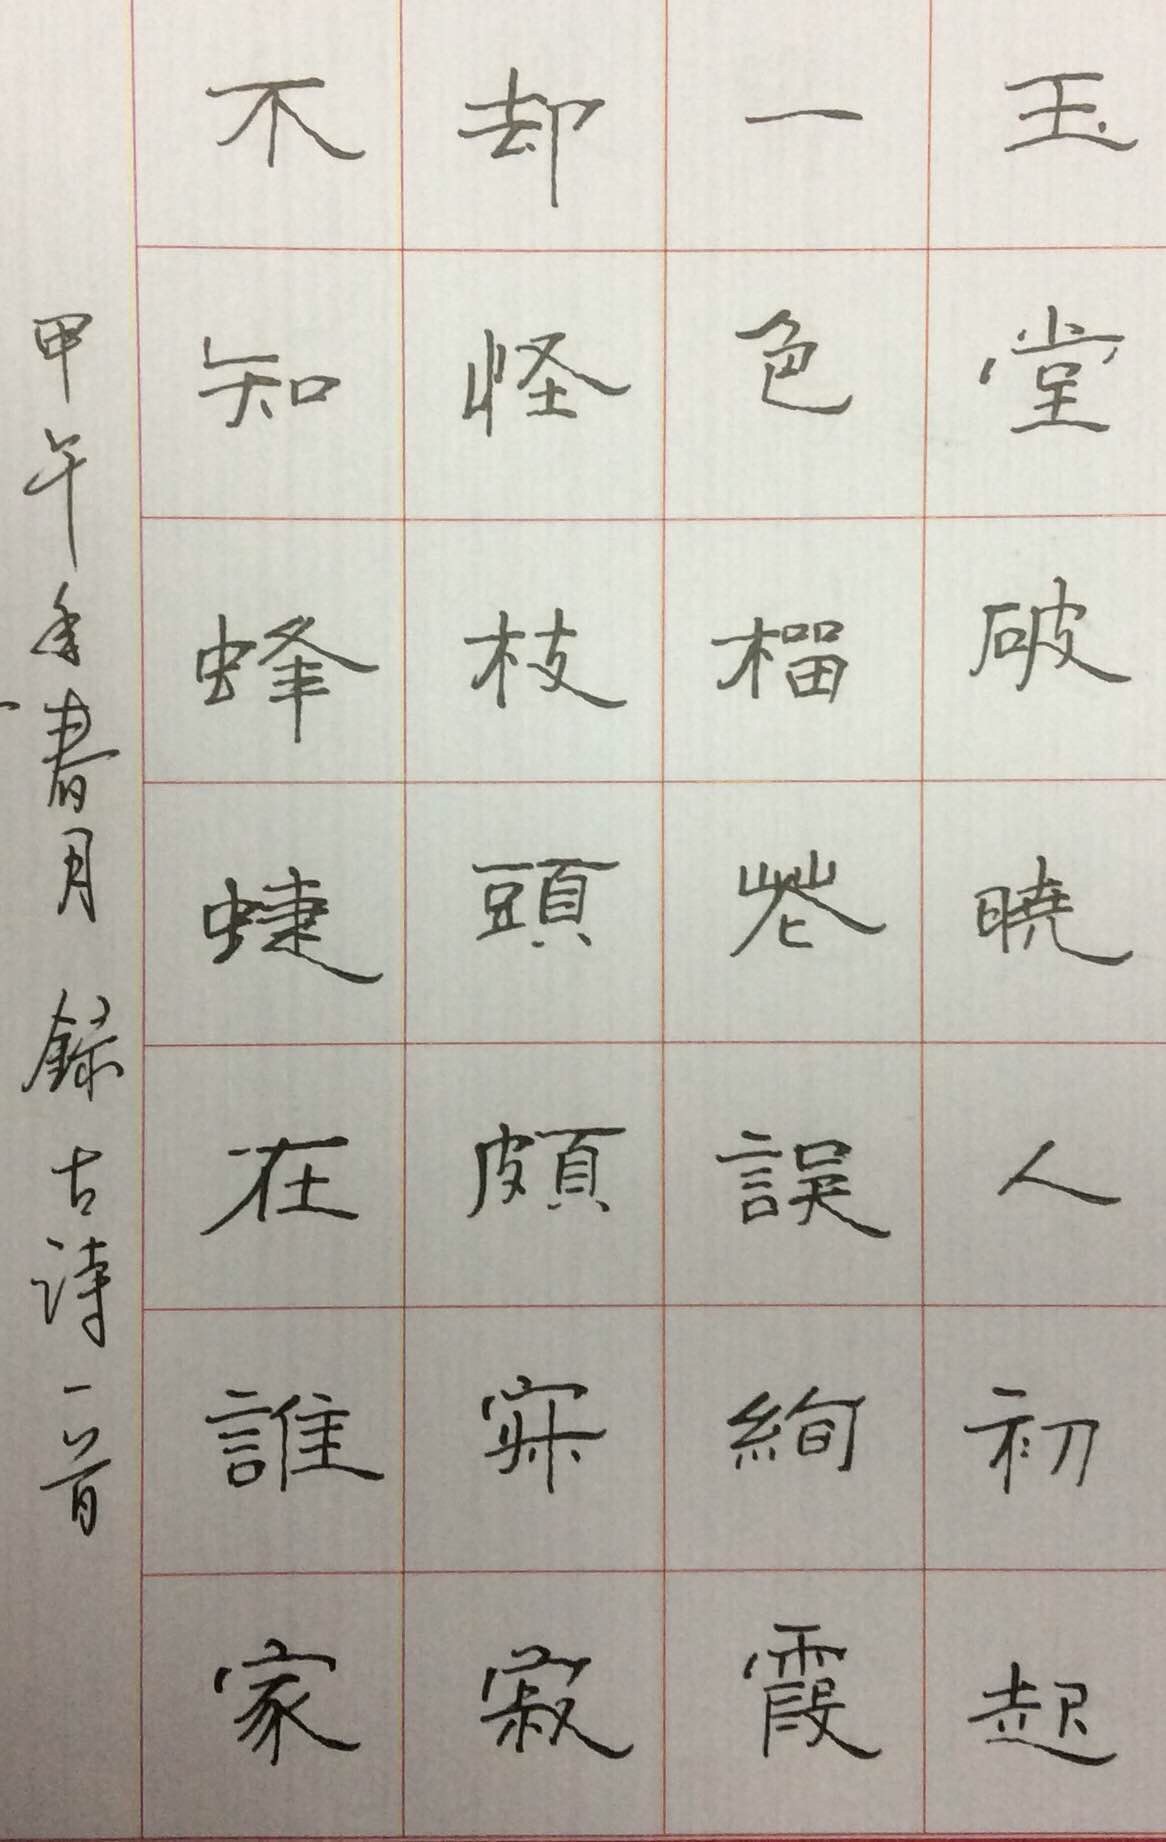 玉堂破暁人初起
一色榴花誤絢霞
却怪枝頭頗寂
不知蜂蜨在誰家
甲午年春月 録古詩一首